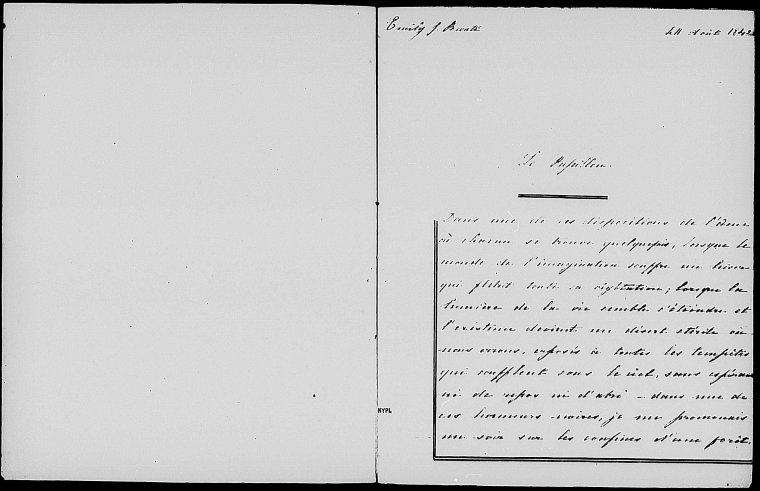 Emily J. Brontë
le 11 Août 1842
Le Papillon.
Dans une de ces dispositions de l'âme
où chacun se trouve quelquefois, lorsque le
monde de l'imagination souffre un hiver
qui flétrit toute sa végétation; lorsque la
lumière de la vie semble s'éteindre et
l'existence devient un désert stérile où
nous errons, exposés à toutes les tempêtes
qui soufflent sous le ciel, sans espérance
ni de repos ni d'abri – dans une de
ces humeurs noires, je me promenais
un soir sur les confins d'une forêt,
NYPL